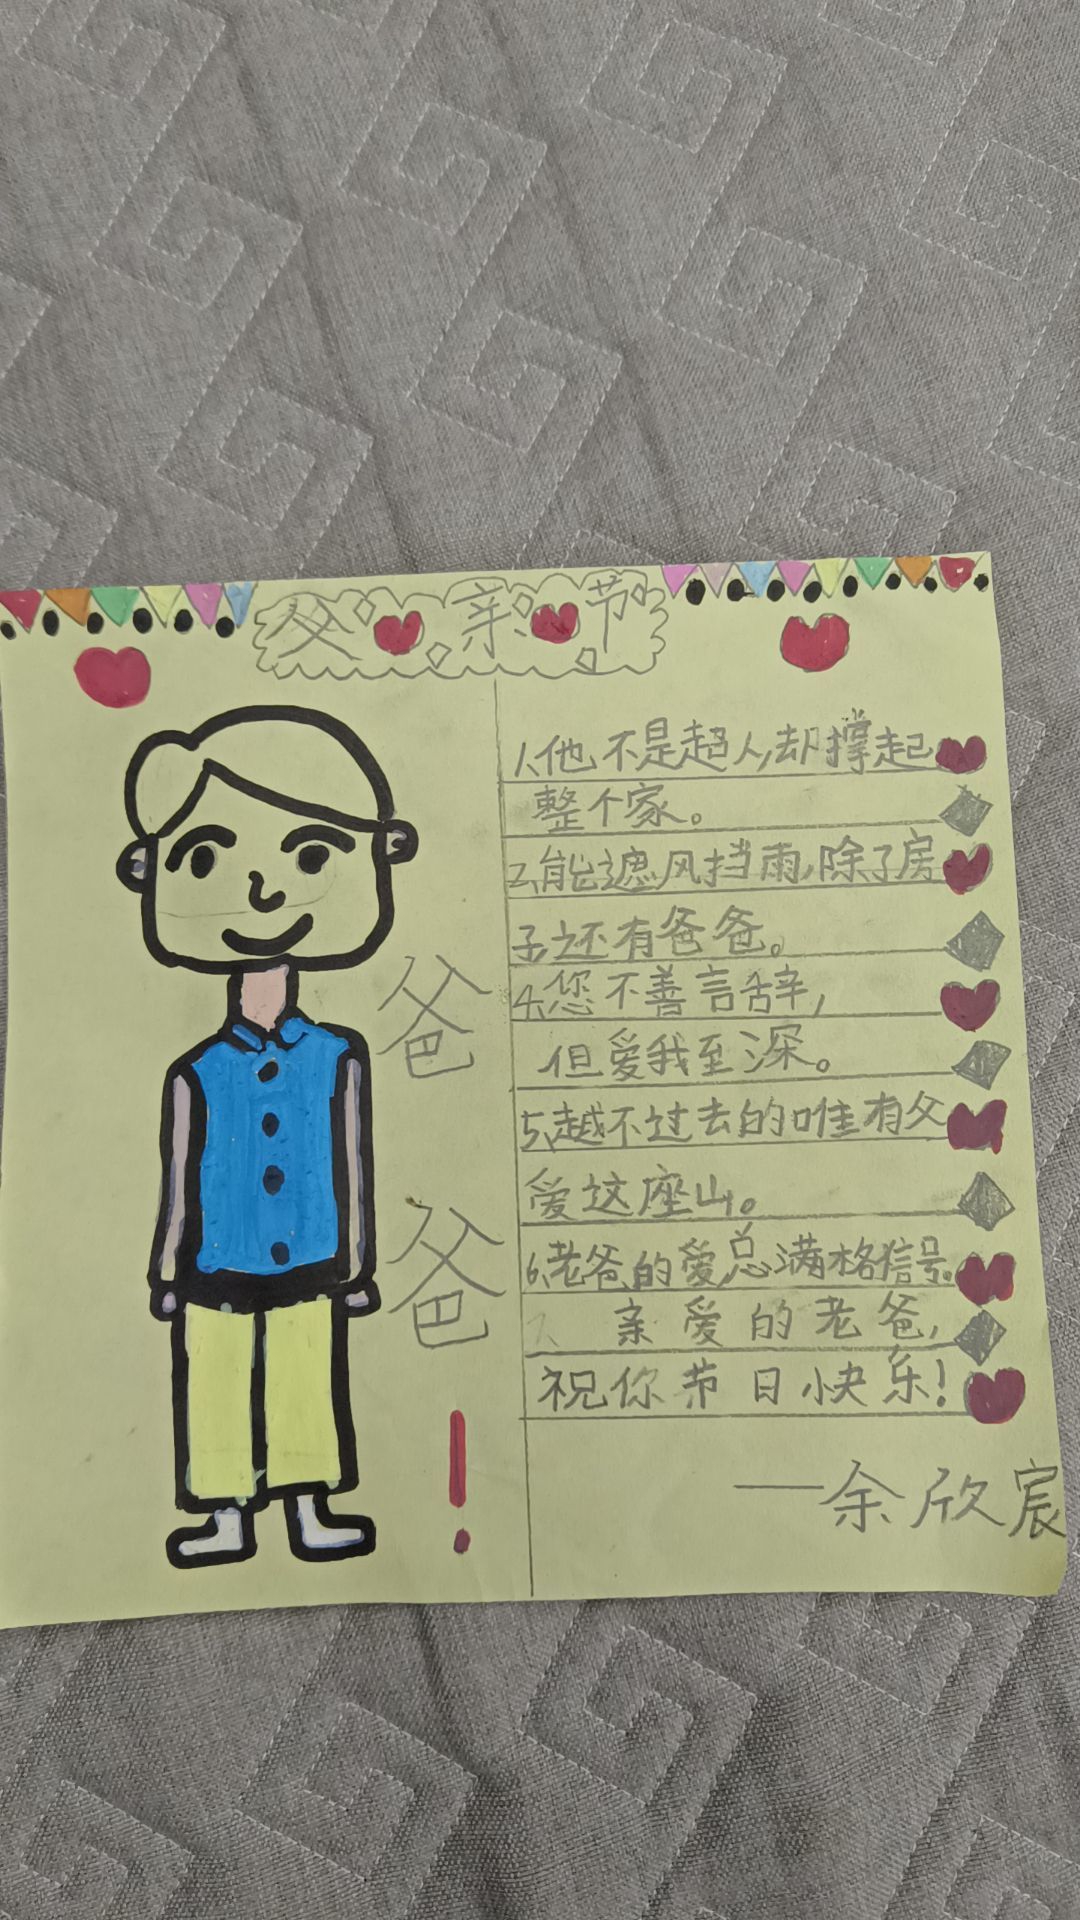 父亲节
爸
爸
!
1、他不是超人,却撑起
整个家。
2、能遮风挡雨,除了房
子,还有爸爸。
4、您不善言辞,
但爱我至深。
5、越不过去的唯有父
爱这座山。
6、老爸的爱,总满格信号。
7、亲爱的老爸,
祝你节日快乐!
——余欣宸